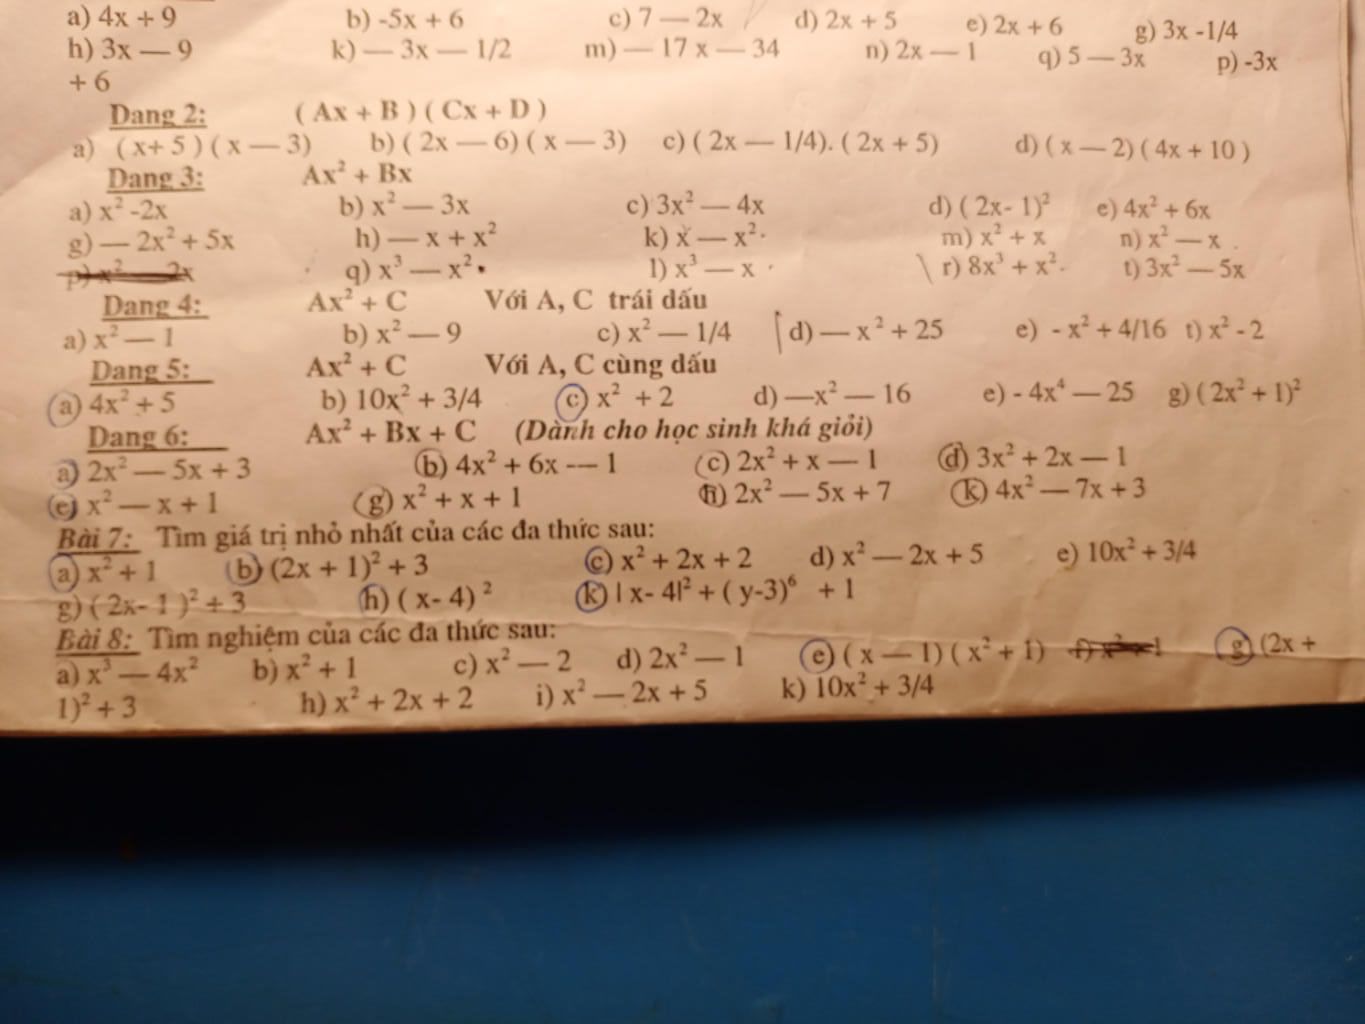 a) 4x + 9 b) -5x + 6 c) 7 — 2x d) 2x + 5 e) 2x + 6 g) 3x -1/4
h) 3x — 9 k) — 3x — 1/2 m) — 17 x — 34 n) 2x — 1 q) 5 — 3x p) -3x
+ 6
Dang 2: ( Ax + B ) ( Cx + D )
a) ( x+ 5 ) ( x — 3) b) ( 2x — 6) ( x — 3) c) ( 2x — 1/4). ( 2x + 5) d) ( x — 2) ( 4x + 10 )
Dang 3: Ax² + Bx
a) x² -2x b) x² — 3x c) 3x² — 4x d) ( 2x- 1)² e) 4x² + 6x
g) — 2x² + 5x h) — x + x² k) x — x². m) x² + x n) x² — x .
p) x² — 2x q) x³ — x². l) x³ — x . r) 8x³ + x². t) 3x² — 5x
Dang 4: Ax² + C Với A, C trái dấu
a) x² — 1 b) x² — 9 c) x² — 1/4 d) — x² + 25 e) - x² + 4/16 t) x² - 2
Dang 5: Ax² + C Với A, C cùng dấu
a) 4x² + 5 b) 10x² + 3/4 c) x² + 2 d) —x² — 16 e) - 4x⁴ — 25 g) ( 2x² + 1)²
Dang 6: Ax² + Bx + C (Dành cho học sinh khá giỏi)
a) 2x² — 5x + 3 b) 4x² + 6x --- 1 c) 2x² + x — 1 d) 3x² + 2x — 1
e) x² — x + 1 g) x² + x + 1 h) 2x² — 5x + 7 k) 4x² — 7x + 3
Bài 7: Tìm giá trị nhỏ nhất của các đa thức sau:
a) x² + 1 b) (2x + 1)² + 3 c) x² + 2x + 2 d) x² — 2x + 5 e) 10x² + 3/4
g) ( 2x- 1 )² + 3 h) ( x- 4) ² k) | x- 4|² + ( y-3)⁶ + 1
Bài 8: Tìm nghiệm của các đa thức sau:
a) x³ — 4x² b) x² + 1 c) x² — 2 d) 2x² — 1 e) ( x — 1) ( x² + 1) g) (2x +
1)² + 3 h) x² + 2x + 2 i) x² — 2x + 5 k) 10x² + 3/4